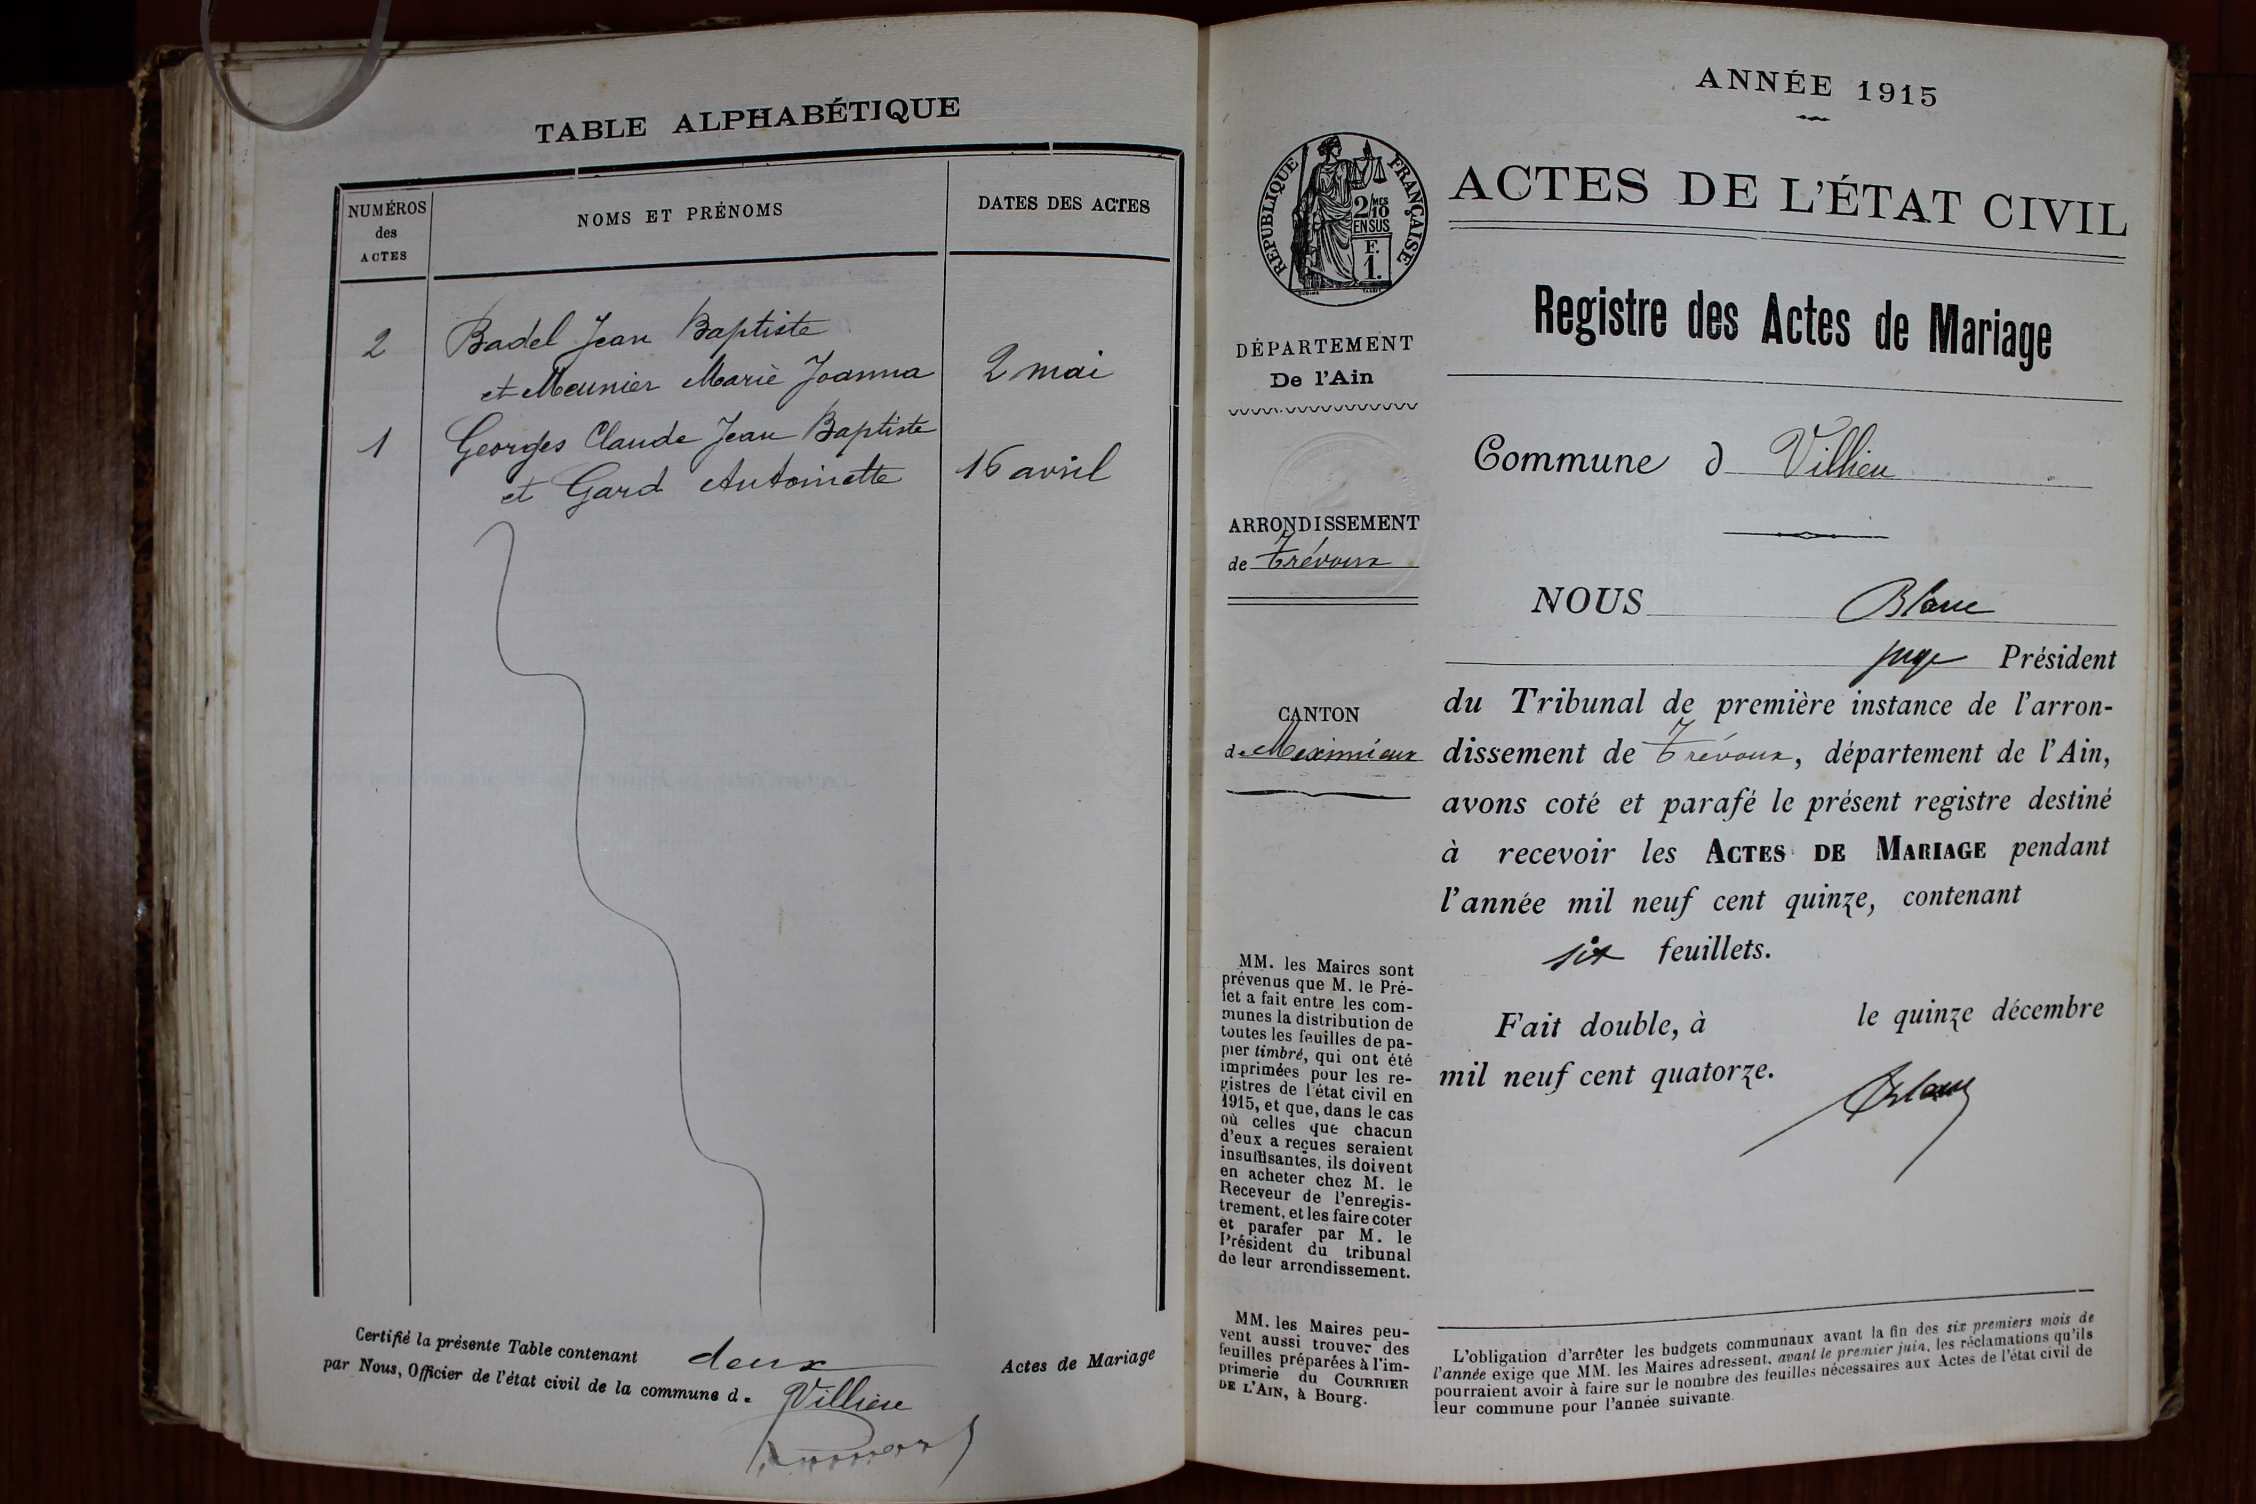 TABLE ALPHABÉTIQUE
NUMÉROS
des
ACTES
NOMS ET PRÉNOMS
DATES DES ACTES
2 Badel Jean Baptiste
et Meunier Marie Joanna 2 mai
1 Georges Claude Jean Baptiste
et Gard Antoinette 16 avril
Certifié la présente Table contenant deux Actes de Mariage
par Nous, Officier de l'état civil de la commune d. Villieu
ANNÉE 1915
RÉPUBLIQUE FRANÇAISE
2/10 MES
EN SUS
F.
1.
ACTES DE L'ÉTAT CIVIL
Registre des Actes de Mariage
DÉPARTEMENT
De l'Ain
Commune d Villieu
ARRONDISSEMENT
de Trévoux
CANTON
de Meximieux
NOUS Blanc
juge Président
du Tribunal de première instance de l'arron-
dissement de Trévoux, département de l'Ain,
avons coté et parafé le présent registre destiné
à recevoir les ACTES DE MARIAGE pendant
l'année mil neuf cent quinze, contenant
six feuillets.
Fait double, à le quinze décembre
mil neuf cent quatorze.
Blanc
MM. les Maires sont
prévenus que M. le Pré-
fet a fait entre les com-
munes la distribution de
toutes les feuilles de pa-
pier timbré, qui ont été
imprimées pour les re-
gistres de l'état civil en
1915, et que, dans le cas
où celles que chacun
d'eux a reçues seraient
insuffisantes, ils doivent
en acheter chez M. le
Receveur de l'enregis-
trement, et les faire coter
et parafer par M. le
Président du tribunal
de leur arrondissement.
MM. les Maires peu-
vent aussi trouver des
feuilles préparées à l'im-
primerie du COURRIER
DE L'AIN, à Bourg.
L'obligation d'arrêter les budgets communaux avant la fin des six premiers mois de
l'année exige que MM. les Maires adressent, avant le premier juin, les réclamations qu'ils
pourraient avoir à faire sur le nombre des feuilles nécessaires aux Actes de l'état civil de
leur commune pour l'année suivante.